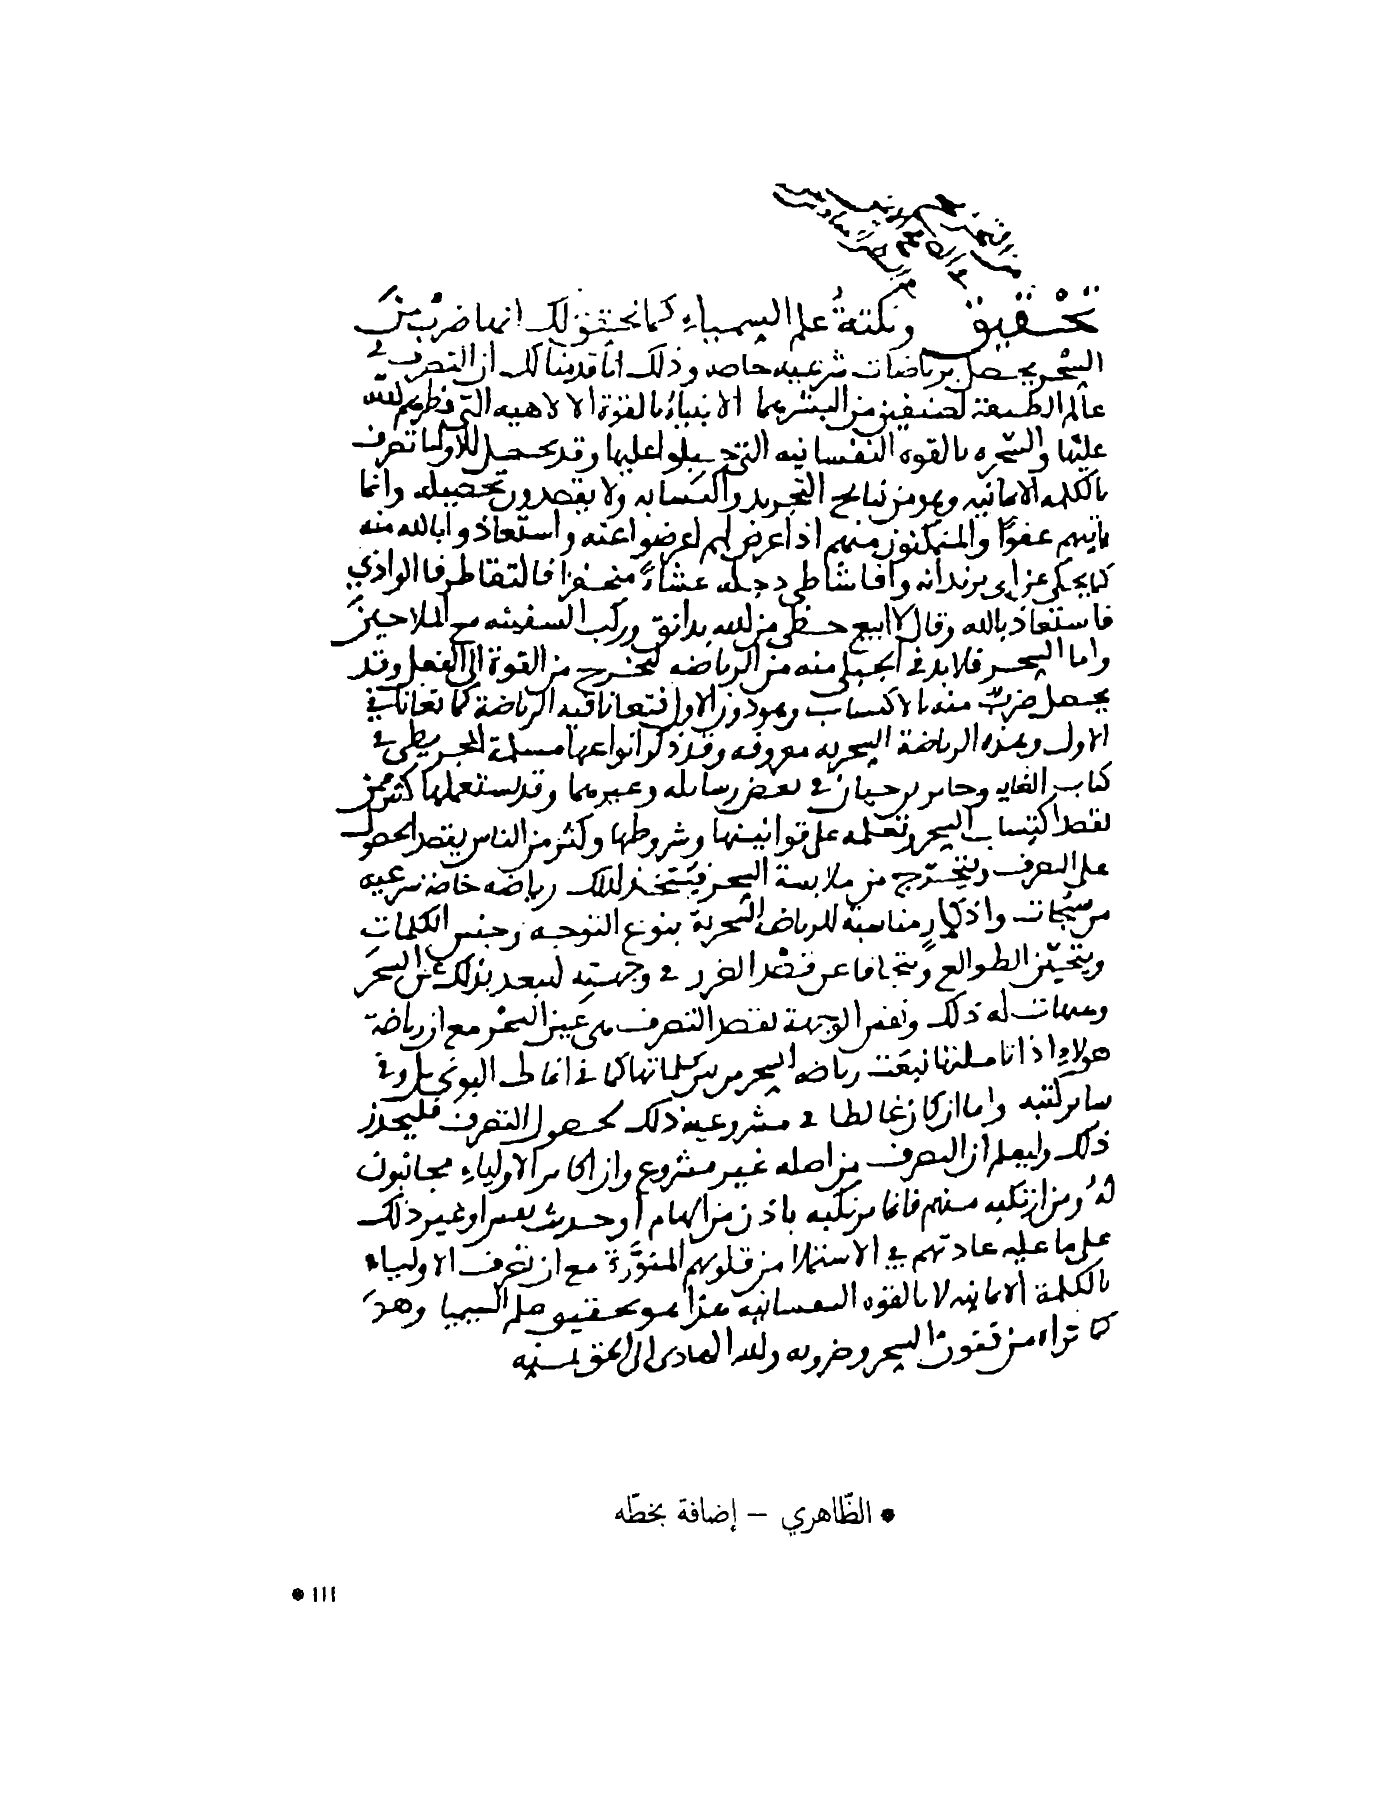 تحقيق ونكتةُ علم السيمياءِ كما نحقق لك انها ضربٌ منَ
السّحْر يحصل برياضات شرعيه خاصه وذلك انا قدمنا لك ان التصرف في
عالم الطبيعة لصنفين من البشر هما الانبياءُ بالقوة الالاهيه التي فطرهم الله
عليها والسّحره بالقوه النفسانيه التي جبلوا عليها وقد يحصل للاوليا تصرف
بالكلمه الايمانيه وهو من نتايج التجريد والكسابه ولا يقصدون تحصيله وانما
ياتيهم عفوًا والمتمكنون منهم اذا عرض لهم اعرضوا عنه واستعاذوا بالله منه
كما يحكى عن ابى يزيد انه وافا شاطى دجله عشاءً متحفزا فالتقا طرفا الوادي
فاستعاذ بالله وقال لا ابيع حظي من الله بدانق وركب السفينه مع الملاحينَ
واما السِّحر فلا بد في الجبلى منه من الرياضه ليخرج من القوة الى الفعل وقد
يحصل ضربٌ منه بالاكتساب وهو دون الاول فتعانا فيه الرياضة كما تعانا في
الاول وهذه الرياضة السِّحريه معروفه وقد ذكر انواعها مسلمة المجريطى في
كتاب الغايه وجابر بن حيان في بعض رسايله وغيرهما وقد يستعملها كثير ممن
يقصد اكتساب السِّحر وتعلمه على قوانينها وشروطها وكثير من الناس يقصد الحصول
على التصرف ويتحرّج من ملابسة السِّحر فيتخذ لذلك رياضه خاصة شرعيه
من سبُحات واذكارٍ مناسبة للرياضه السّحرية بنوع التوجه وجنس الكلمات
ويتحيّن الطوالع ويتجافا عن قصْد الضرر في وجهته ليبعد بذلك عن السِّحرَ
وهيهات له ذلك ونفس الوجهة بقصد التصرف هى عين السحْر مع ان رياضة
هولاءِ اذا تاملتها نبعَت رياضه السِّحر من بين كلماتها كما في انماط البونى بل وفى
ساير كتبه واما ان كان غالطا في مشروعية ذلك لحصول التصرف فليحذر
ذلك وليعلم ان التصرف من اصله غير مشروع وان اكابر الاولياءِ مجانبون
لهُ ومن ارتكبه منهم فانما يرتكبه باذن من الهام او حديث نفس او غير ذلك
على ما عليه عادتهم في الاستملا من قلوبهم المنوَّرة مع ان تصرف الاولياء
بالكلمة الايمانيه لا بالقوه النفسانيه هذا هو تحقيق علم السيميا وهذَ
كما تراه من فنون السِّحر وضروبه والله الهادى الى الحق بمنه
* الظّاهري – إضافة بخطّه
١١١ *